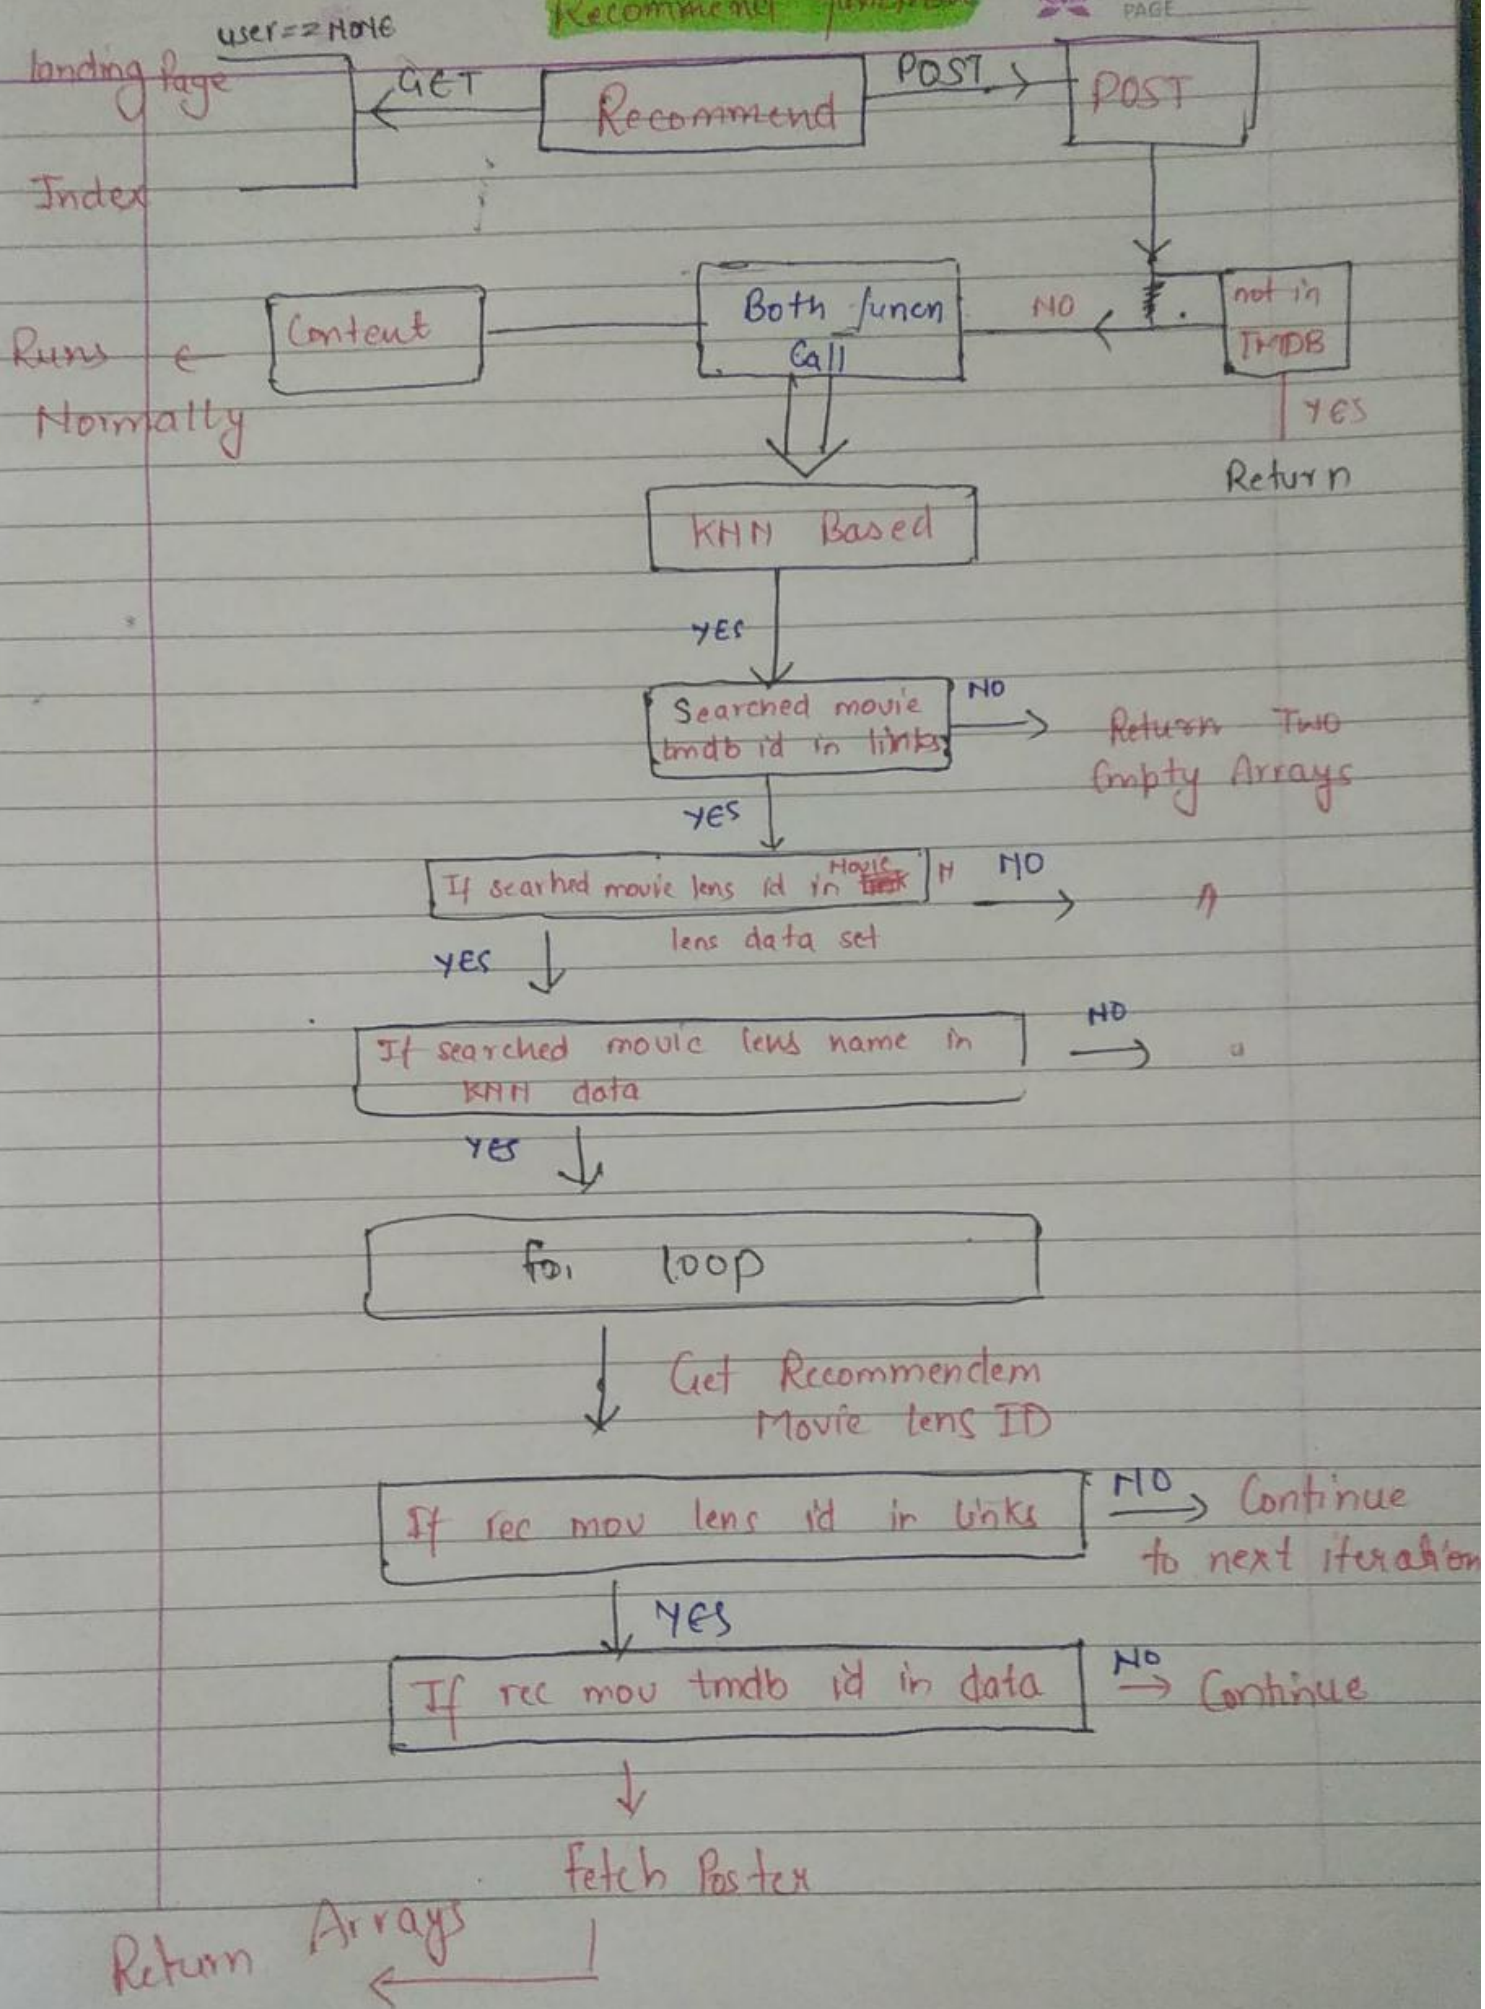 Recommend function
PAGE
user==NONE
landing Page
GET
Recommend
POST
POST
Index
Content
Both funcn
Call
NO
not in
TMDB
Runs
Normally
YES
Return
KNN Based
YES
Searched movie
tmdb id in links
NO
Return Two
Empty Arrays
YES
If searhed movie lens id in Movie
NO
lens data set
YES
If searched movie lens name in
KNN data
NO
YES
for loop
Get Recommendem
Movie lens ID
If rec mov lens id in links
NO
Continue
to next iteration
YES
If rec mov tmdb id in data
NO
Continue
fetch Poster
Return Arrays